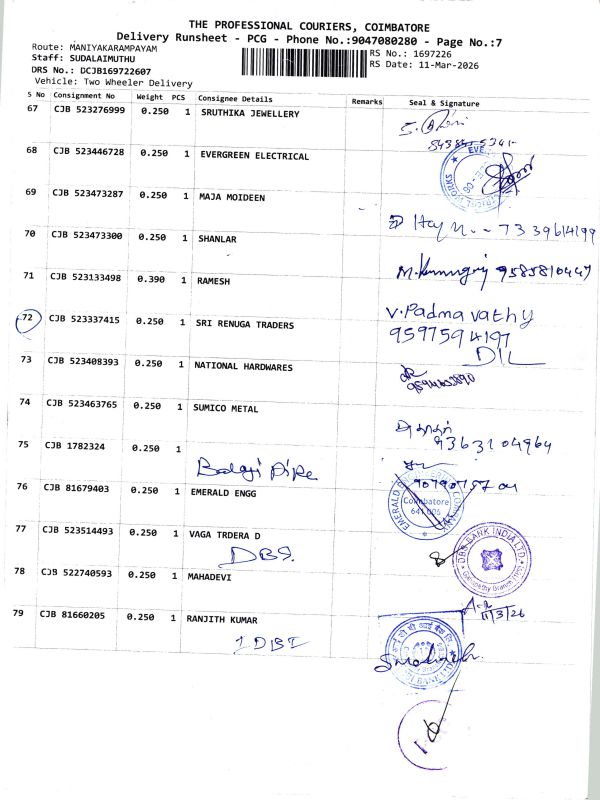 THE PROFESSIONAL COURIERS, COIMBATORE
Delivery Runsheet - PCG - Phone No.:9047080280 - Page No.:7
Route: MANIYAKARAMPAYAM
RS No.: 1697226
Staff: SUDALAIMUTHU
RS Date: 11-Mar-2026
DRS No.: DCJB169722607
Vehicle: Two Wheeler Delivery
S No Consignment No Weight PCS Consignee Details Remarks Seal & Signature
67 CJB 523276999 0.250 1 SRUTHIKA JEWELLERY
68 CJB 523446728 0.250 1 EVERGREEN ELECTRICAL
69 CJB 523473287 0.250 1 MAJA MOIDEEN
7339614199
70 CJB 523473300 0.250 1 SHANLAR
9585810447
71 CJB 523133498 0.390 1 RAMESH
V.Padmavathy
9597594197
72 CJB 523337415 0.250 1 SRI RENUGA TRADERS
DIL
73 CJB 523408393 0.250 1 NATIONAL HARDWARES
74 CJB 523463765 0.250 1 SUMICO METAL
9363104964
75 CJB 1782324 0.250 1
Balaji Pipe
76 CJB 81679403 0.250 1 EMERALD ENGG
Coimbatore
641 006
77 CJB 523514493 0.250 1 VAGA TRDERA D
DBS.
DBS BANK INDIA LTD.
78 CJB 522740593 0.250 1 MAHADEVI
11/3/26
79 CJB 81660205 0.250 1 RANJITH KUMAR
IDBI